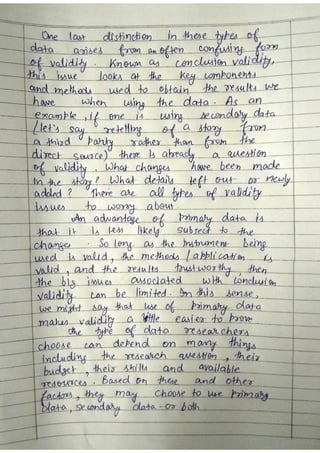 One last distinction in these types of
data arises from an often confusing form
of validity. Known as conclusion validity,
this issue looks at the key components
and methods used to obtain the results we
have when using the data. As an
example, if one is using secondary data
(let's say retelling of a story from
a third party rather than from the
direct source) there is already a question
of validity. What changes have been made
in the story? What details left out or newly
added? There are all types of validity
issues to worry about
An advantage of primary data is
that it is less likely subject to the
changes. So long as the instrument being
used is valid, the methods/application is
valid, and the results trustworthy, then
the big issues associated with conclusion
validity can be limited. In this sense,
we might say that use of primary data
makes validity a little easier to prove
the type of data researchers
choose can depend on many things
including the research question, their
budget, their skills and available
resources. Based on these and other
factors, they may choose to use primary
data, secondary data - or both